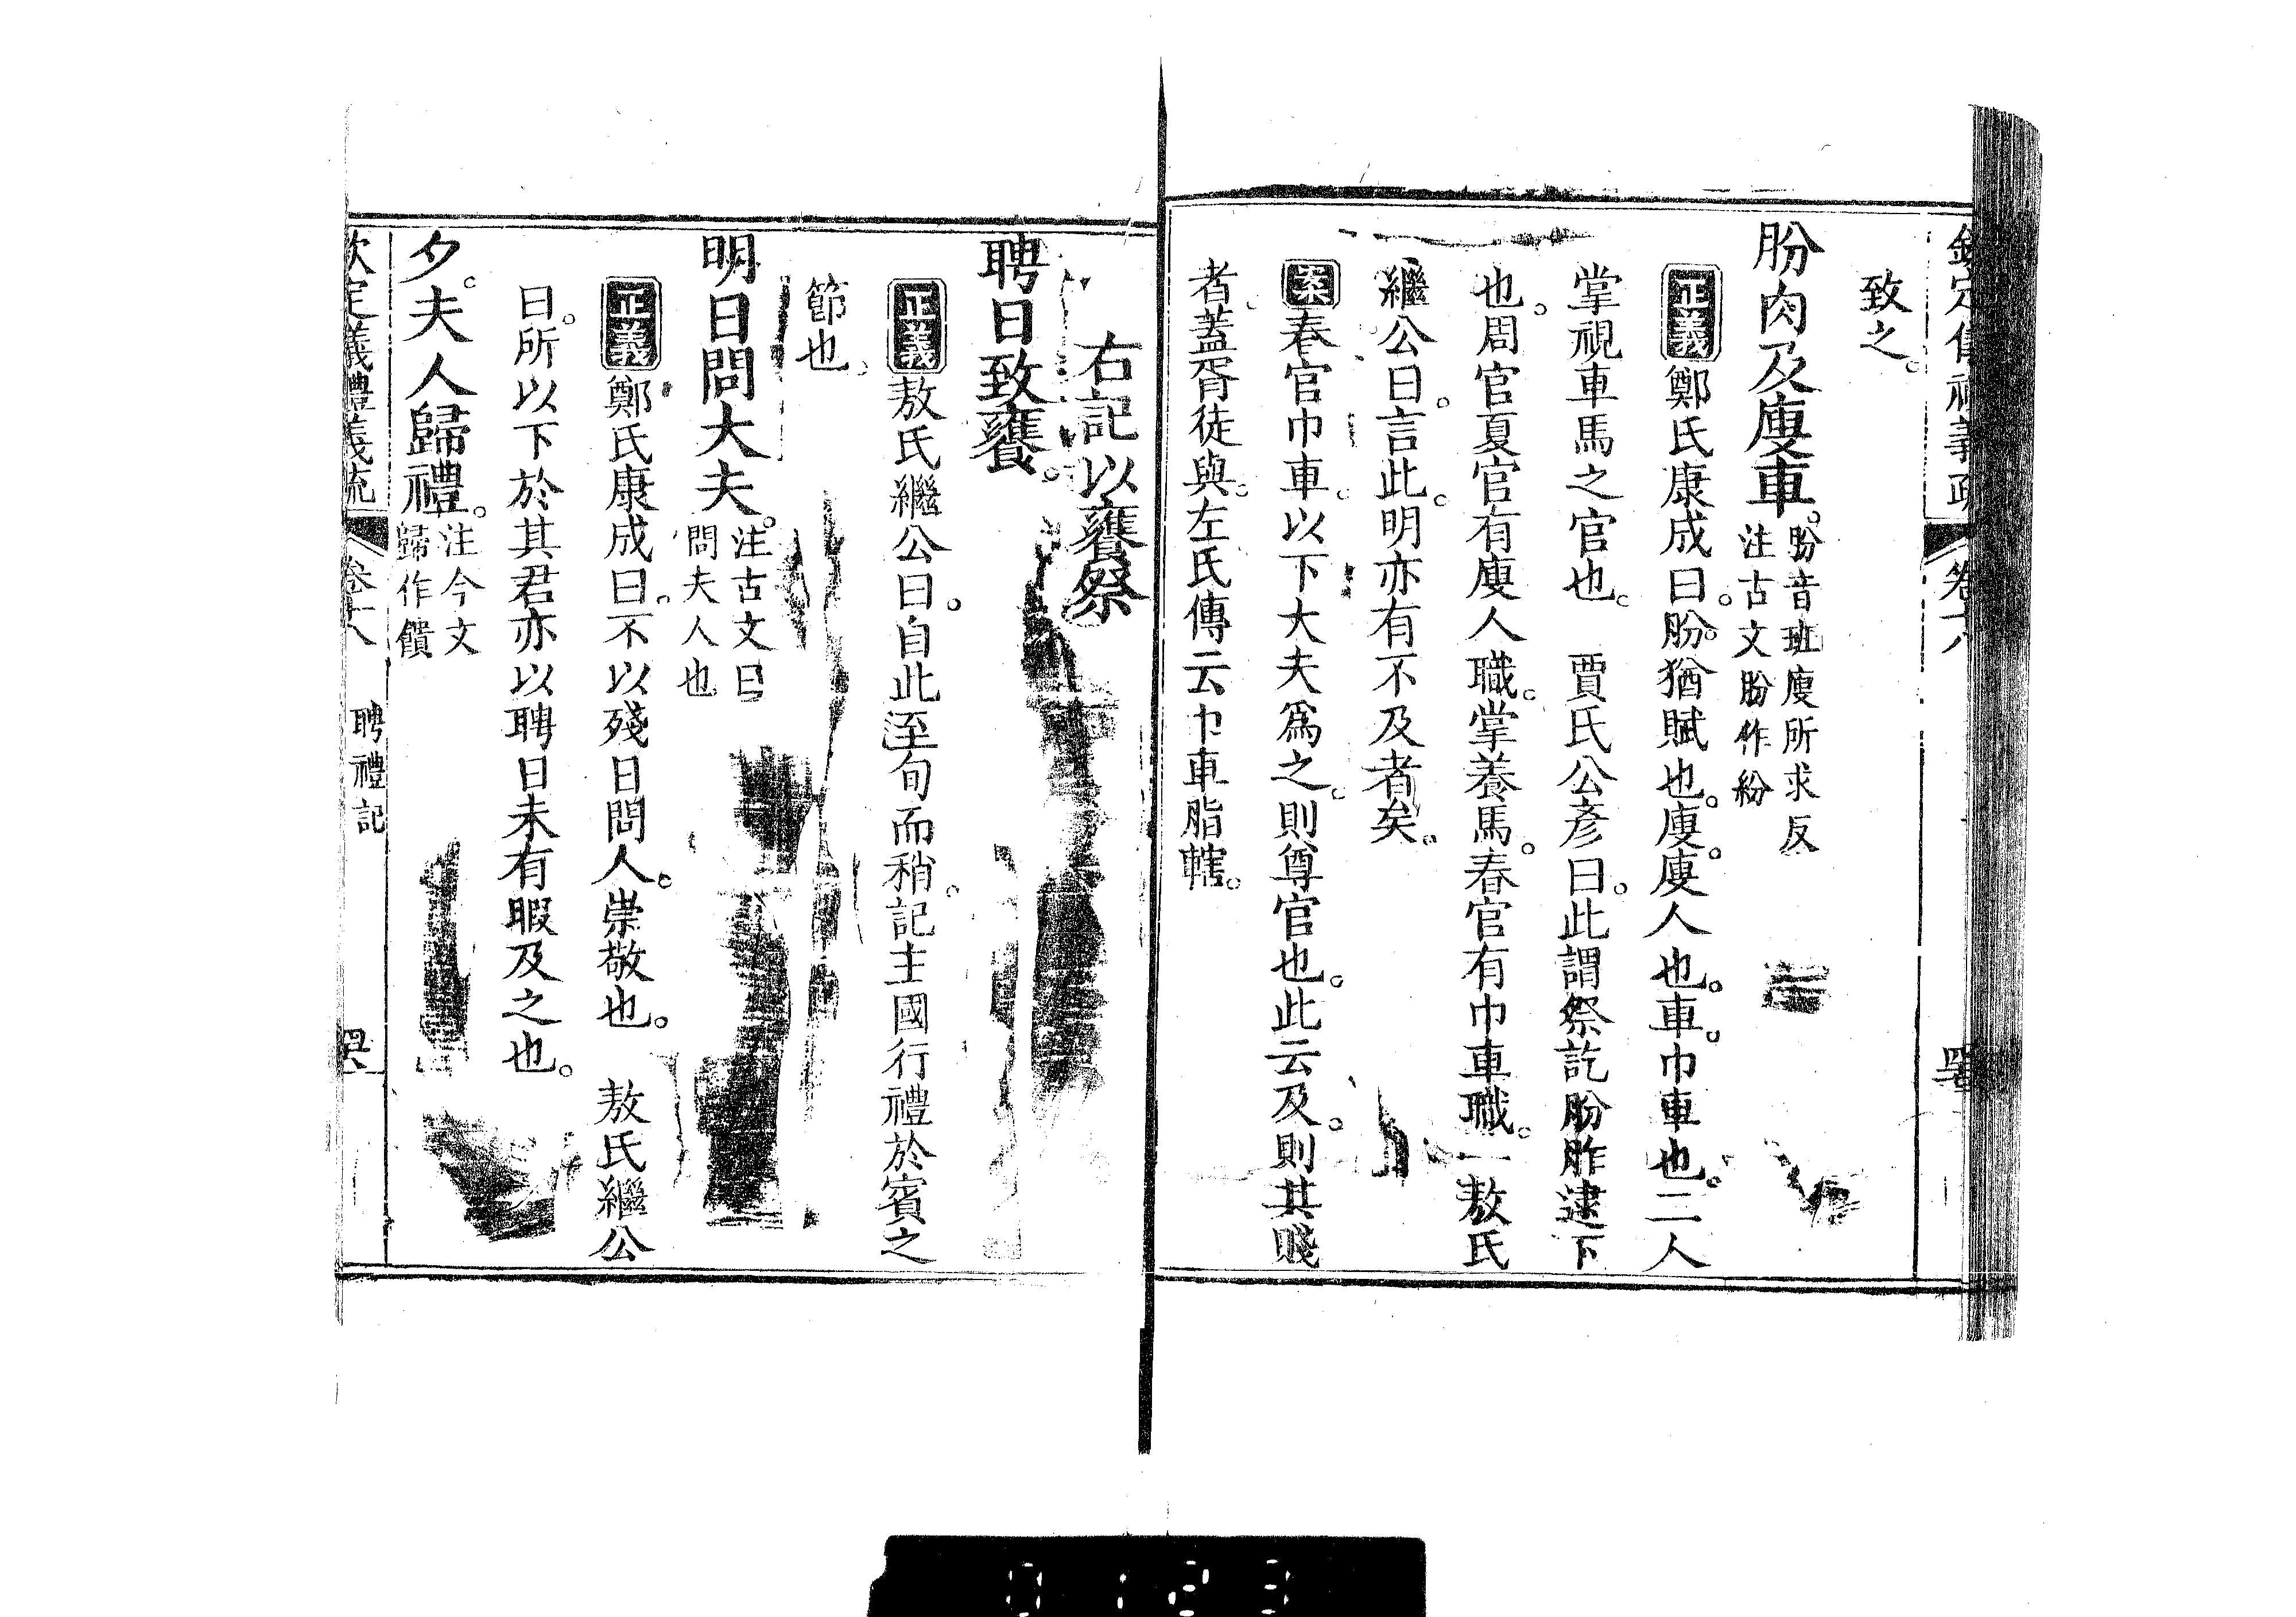 致之。
肦肉及廋車。肦音班廋所求反
注古文肦作紛
正義鄭氏康成曰。肦。猶賦也。廋。廋人也。車。巾車也。二人
掌視車馬之官也。　賈氏公彥曰。此謂祭訖肦胙逮下
也。周官夏官有廋人職。掌養馬。春官有巾車職。　敖氏
繼公曰。言此。明亦有不及者矣。
案春官巾車。以下大夫爲之。則尊官也。此云及。則其賤
者。蓋胥徒與。左氏傳云巾車脂轄。
右記以饔祭
聘日致饔。
正義敖氏繼公曰。自此至旬而稍。記主國行禮於賓之
節也。
明日問大夫。注古文曰
問夫人也
正義鄭氏康成曰。不以殘日問人。崇敬也。　敖氏繼公
曰。所以下於其君亦以聘日未有暇及之也。
夕。夫人歸禮。注今文
歸作饋
聘禮記
0123